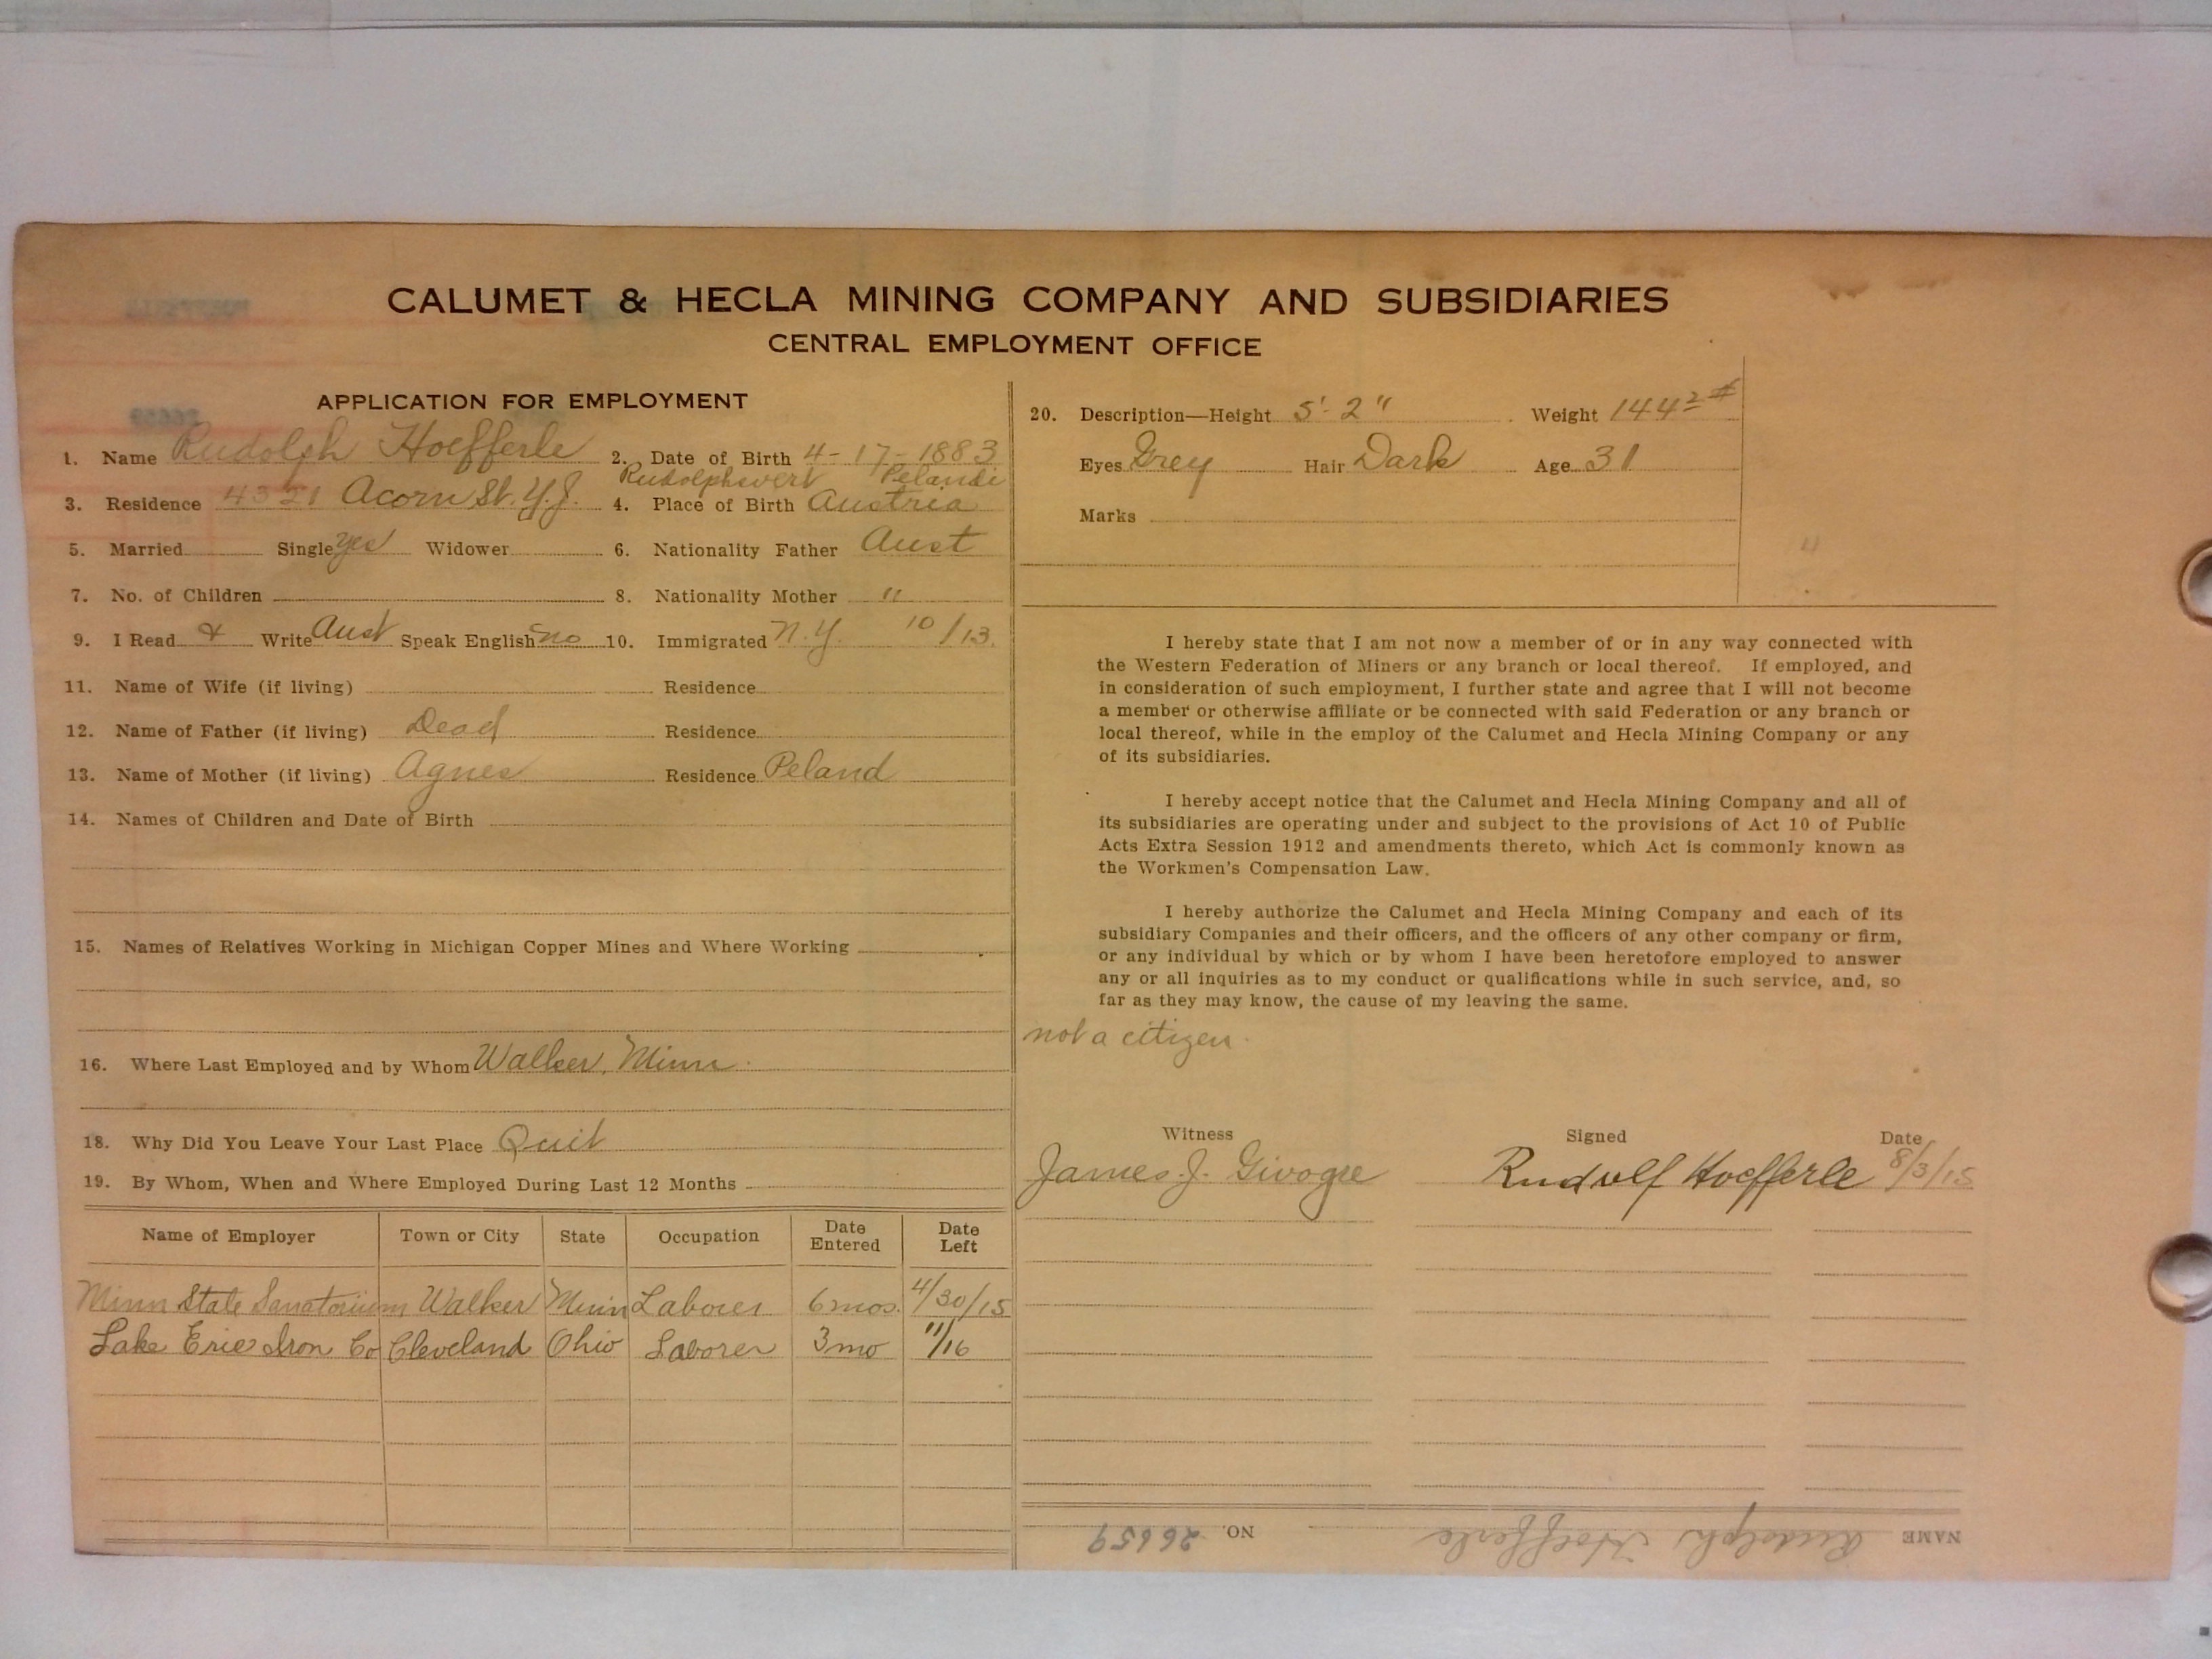 CALUMET & HECLA MINING COMPANY AND SUBSIDIARIES
CENTRAL EMPLOYMENT OFFICE
APPLICATION FOR EMPLOYMENT
1. Name Rudolph Hoefferle 2. Date of Birth 4-17-1883
3. Residence 4321 Acorn St. Y.J. 4. Place of Birth Rudolphswert Pelandi Austria
5. Married Single yes Widower 6. Nationality Father Aust
7. No. of Children 8. Nationality Mother "
9. I Read & Write Aust Speak English no 10. Immigrated N.Y. 10/13.
11. Name of Wife (if living) Residence
12. Name of Father (if living) Dead Residence
13. Name of Mother (if living) Agnes Residence Peland
14. Names of Children and Date of Birth
15. Names of Relatives Working in Michigan Copper Mines and Where Working
16. Where Last Employed and by Whom Walker, Minn
18. Why Did You Leave Your Last Place Quit
19. By Whom, When and Where Employed During Last 12 Months
Name of Employer Town or City State Occupation Date Entered Date Left
Minn State Sanatorium Walker Minn Laborer 6 mos. 4/30/15
Lake Erie Iron Co Cleveland Ohio Laborer 3 mo 11/16
20. Description—Height 5'-2" Weight 144 2 #
Eyes Grey Hair Dark Age 31
Marks
I hereby state that I am not now a member of or in any way connected with
the Western Federation of Miners or any branch or local thereof. If employed, and
in consideration of such employment, I further state and agree that I will not become
a member or otherwise affiliate or be connected with said Federation or any branch or
local thereof, while in the employ of the Calumet and Hecla Mining Company or any
of its subsidiaries.
I hereby accept notice that the Calumet and Hecla Mining Company and all of
its subsidiaries are operating under and subject to the provisions of Act 10 of Public
Acts Extra Session 1912 and amendments thereto, which Act is commonly known as
the Workmen's Compensation Law.
I hereby authorize the Calumet and Hecla Mining Company and each of its
subsidiary Companies and their officers, and the officers of any other company or firm,
or any individual by which or by whom I have been heretofore employed to answer
any or all inquiries as to my conduct or qualifications while in such service, and, so
far as they may know, the cause of my leaving the same.
not a citizen.
Witness Signed Date
James J. Givogre Rudolf Hoefferle 8/3/15
NAME Rudolph Hoefferle NO. 26659